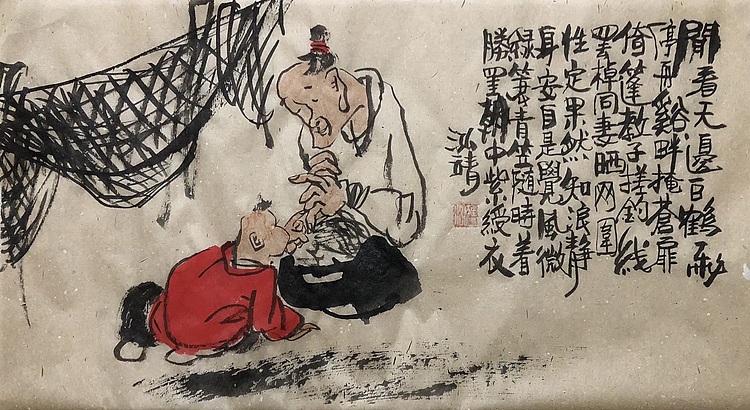 閒看天邊白鶴飛
停舟谿畔掩蒼扉
倚篷教子搓鈎线
罢棹同妻晒网圍
性定果然知浪静
身安自是覺風微
緑簑青笠随時着
勝罣朝中紫綬衣